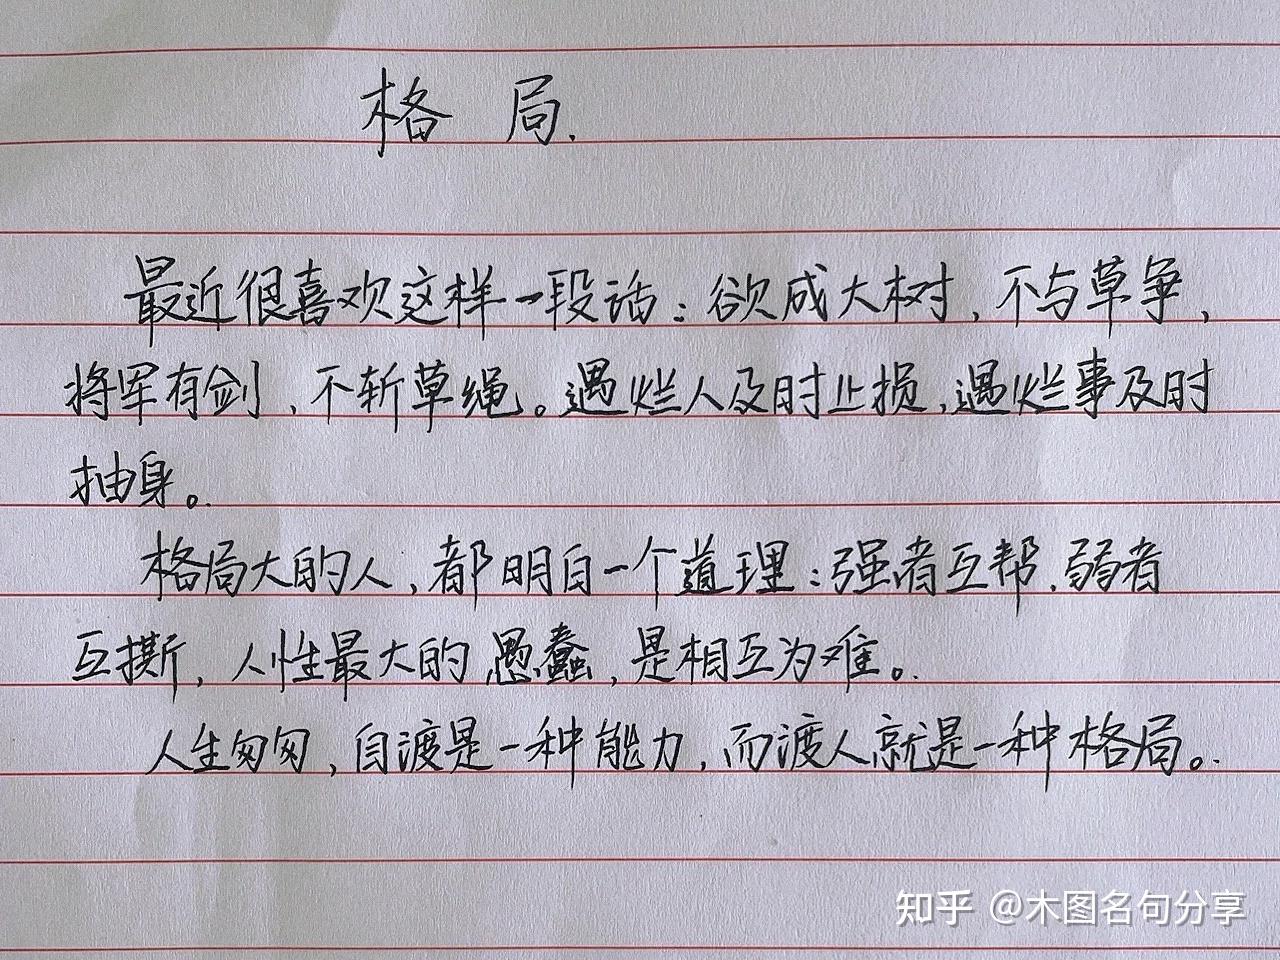 格局.
最近很喜欢这样一段话：欲成大树，不与草争，
将军有剑，不斩草绳。遇烂人及时止损，遇烂事及时
抽身。
格局大的人，都明白一个道理：强者互帮，弱者
互撕，人性最大的愚蠢，是相互为难。
人生匆匆，自渡是一种能力，而渡人就是一种格局。
知乎 @木图名句分享